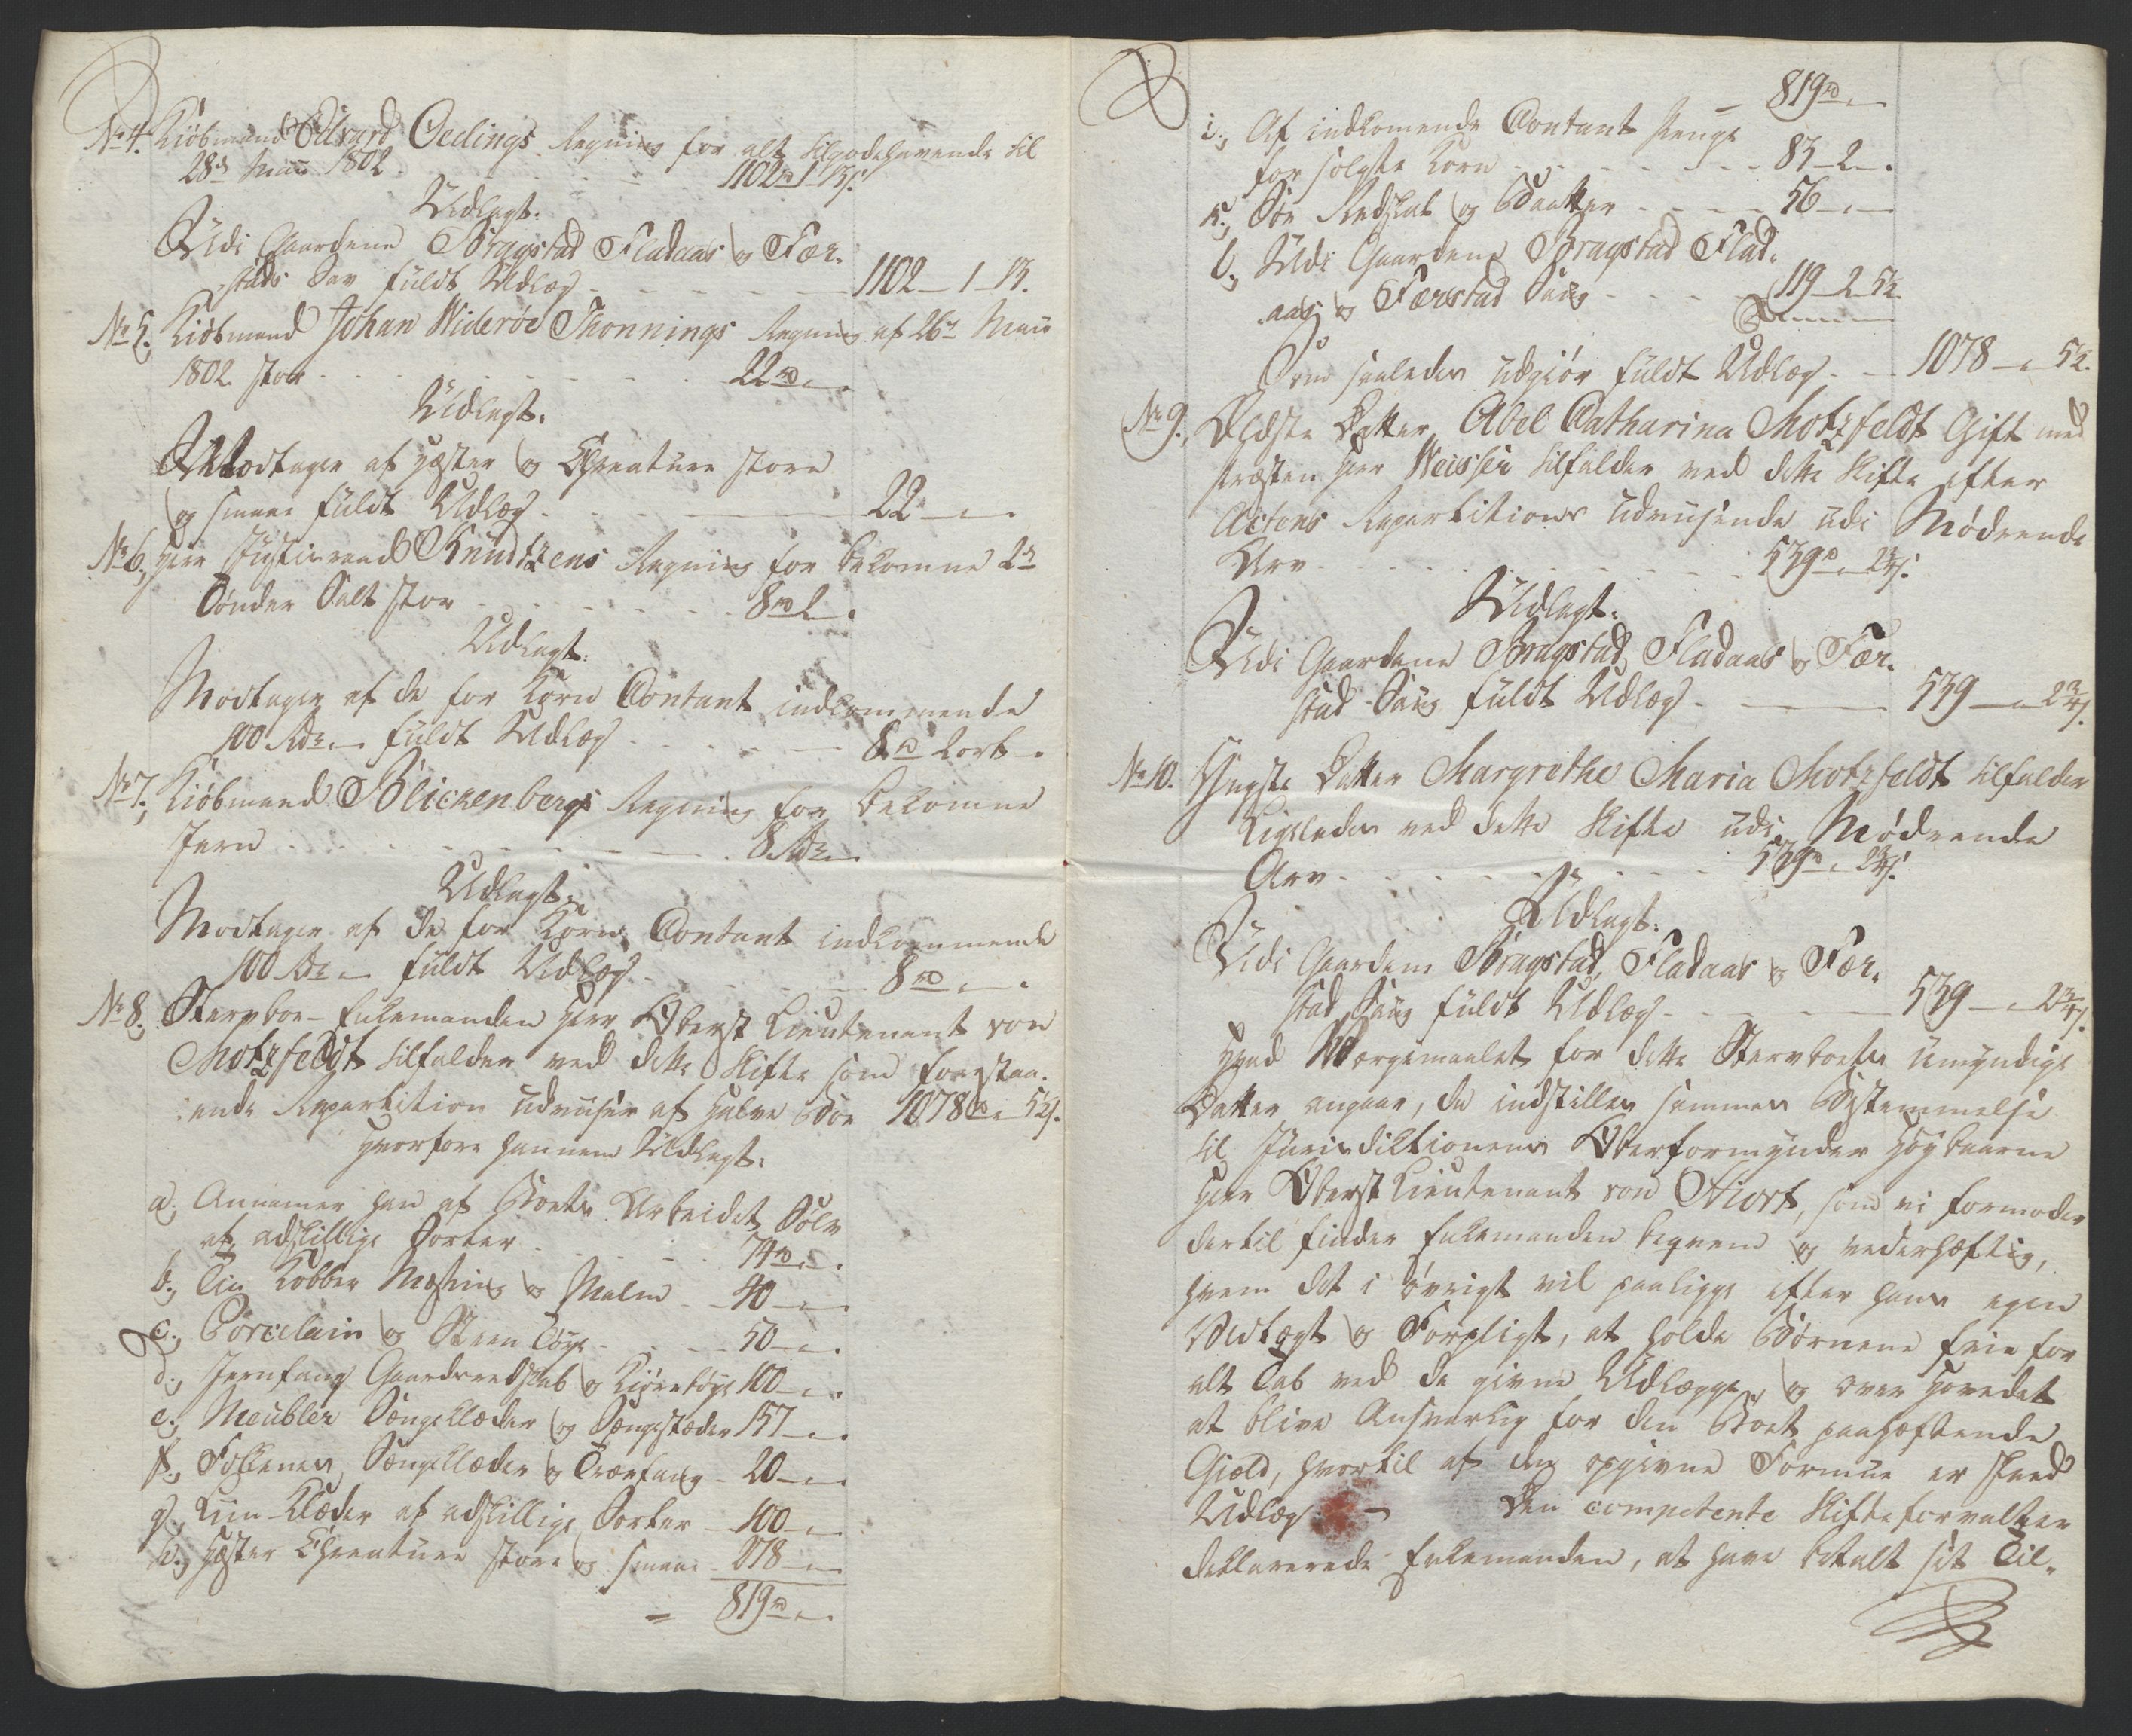 No 4. Kiöbmand Edvard Oedings Regning for alt tilgodehavende til
28de Maii 1802 1102 rd 1 - 13 s.
Udlagt.
Udi Gaardene Bragstad Fladaas og Fær-
stads Sav fuldt Udlæg 1102 - 1 - 13.
No 5. Kiöbmand Johan Widerøe Thonnings Regning af 26de Maii
1802 stor 22 rd - .
Udlagt.
Modtager af Hæster og Chreature store
og smaae fuldt Udlæg 22 - -
No 6, Herr Justiceraad Knudtzens Regning for bekomne 2de
Tönder Salt stor 8 rd 2 .
Udlagt.
Modtager af de for Korn Contant indkommende
100 Rdr - fuldt Udlæg 8 rd 2 ort - .
No 7, Kiöbmand Blickenbergs Regning for bekomne
Jern 8 Rdr -
Udlagt.
Modtager af de for Korn Contant indkommende
100 Rdr - fuldt Udlæg 8 rd - .
No 8, Stervboe-Enkemanden Herr Oberst Lieutenant von
Motzfeldt tilfalder ved dette Skifte som forestaa-
ende Repartition udviiser af halve Boe 1078 rd - 5½ s.
hvorfore hannem Udlagt.
a, Annamer han af Boets Arbeidet Sölv
af adskillige Sorter 74 rd - .
b, Tin Kobber Messing og Malm 40 - -
c, Porcelain og Steen Töye 50 - - .
d, Jernfang Gaardsredskab og Kiöretöye 100 - - .
e, Meubler Sengeklæder og Sengestæder 157 - - .
f, Folkenes Sengeklæder og Træefang 20 - -
g, Liin-Klæder af adskillige Sorter 100 - -
h, Hæster Chreature store og smaae 278 - -
= 819 rd - .
819 rd -
i, Af indkomende Contant Penge
for solgte Korn 83 - 2 - .
k, Söe Redskab og Baatter 56 - -
l, Udi Gaardene Bragstad Flad-
aas og Færstad Saug 119 - 2 - 5½
Som saaledes udgiör fuldt Udlæg 1078 - - 5½.
No 9, Ældste Datter Abel Catharina Motzfeldt Gift med
Præsten Herr Weisser tilfalder ved dette Skifte efter
Actens Repartitions udviisende udi Mödrende
Arv 539 rd - 2¾ s.
Udlagt.
Udi Gaardene Bragstad, Fladaas og Fær-
stad Saug fuldt Udlæg 539 - - 2¾ s.
No 10. Yngste Datter Margrethe Maria Motzfeldt tilfalder
Ligeledes ved dette Skifte udi Mödrende
Arv 539 rd - 2¾ s.
Udlagt.
Udi Gaardene Bragstad, Fladaas og Fær-
stad Saug fuldt Udlæg 539 - - 2¾ s.
Hvad Værgemaalet for dette Stervboets umyndige
Datter angaar, da indstilles sammes Bestemmelse
til Jurisdiktionens Oberformynder Höybaarne
Herr Oberst Lieutenant von Hiort, som vi formoder
dertil finder Enkemanden beqvem og vederhæftig,
hvem det i övrigt vil paaligge efter hans egen
Vedtægt og Forpligt, at holde Börnene frie for
alt Tab ved de givne Udlægge, og over Hovedet
at blive Ansvarlig for den Boet paahæftende
Gjæld, hvortil af den opgivne Formue er skeed
Udlæg - Den competente Skifteforvalter
declarerede Enkemanden, at have betalt sit Til-